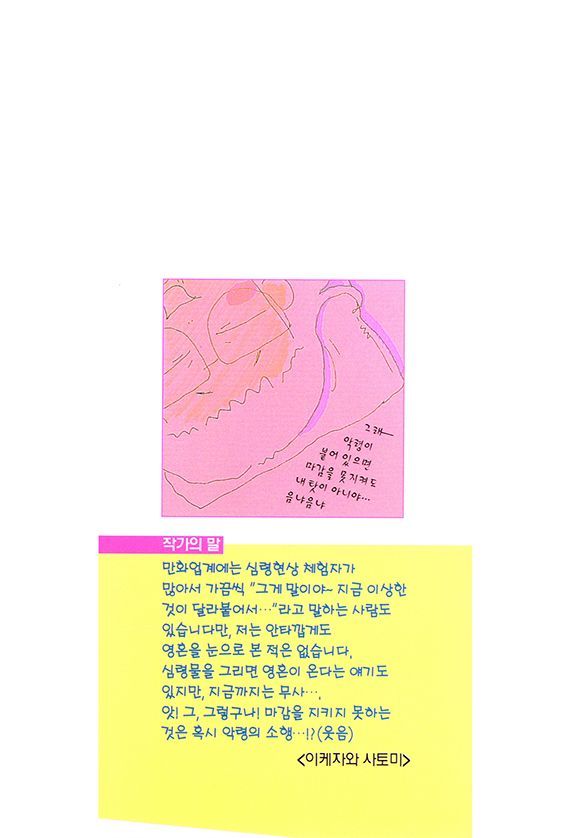 그래―
악령이
붙어 있으면
마감을 못지켜도
내 탓이 아니야…
음냐음냐
작가의 말
만화업계에는 심령현상 체험자가
많아서 가끔씩 "그게 말이야~ 지금 이상한
것이 달라붙어서…"라고 말하는 사람도
있습니다만, 저는 안타깝게도
영혼을 눈으로 본 적은 없습니다.
심령물을 그리면 영혼이 온다는 얘기도
있지만, 지금까지는 무사….
앗! 그, 그렇구나! 마감을 지키지 못하는
것은 혹시 악령의 소행…!?(웃음)
<이케자와 사토미>